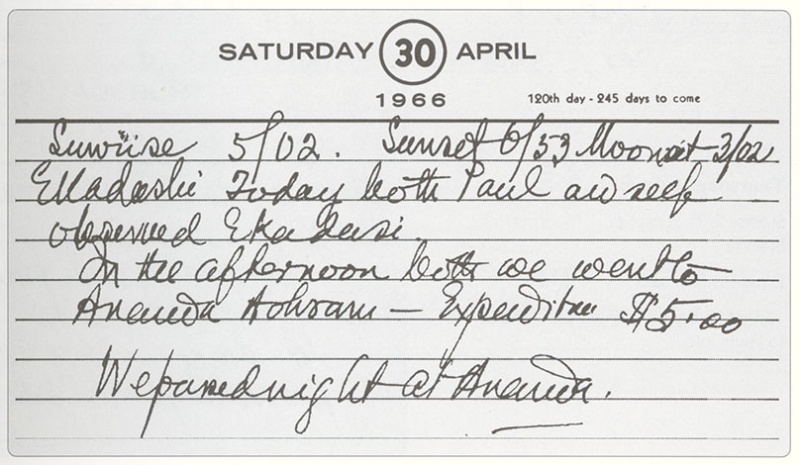 SATURDAY 30 APRIL
1966
120th day - 245 days to come
Sunrise 5/02. Sunset 6/53 Moonset 3/02
Ekadashi Today both Paul and self
observed Ekadasi.
In the afternoon both we went to
Ananda Ashram — Expenditure $5.00
We passed night at Ananda.